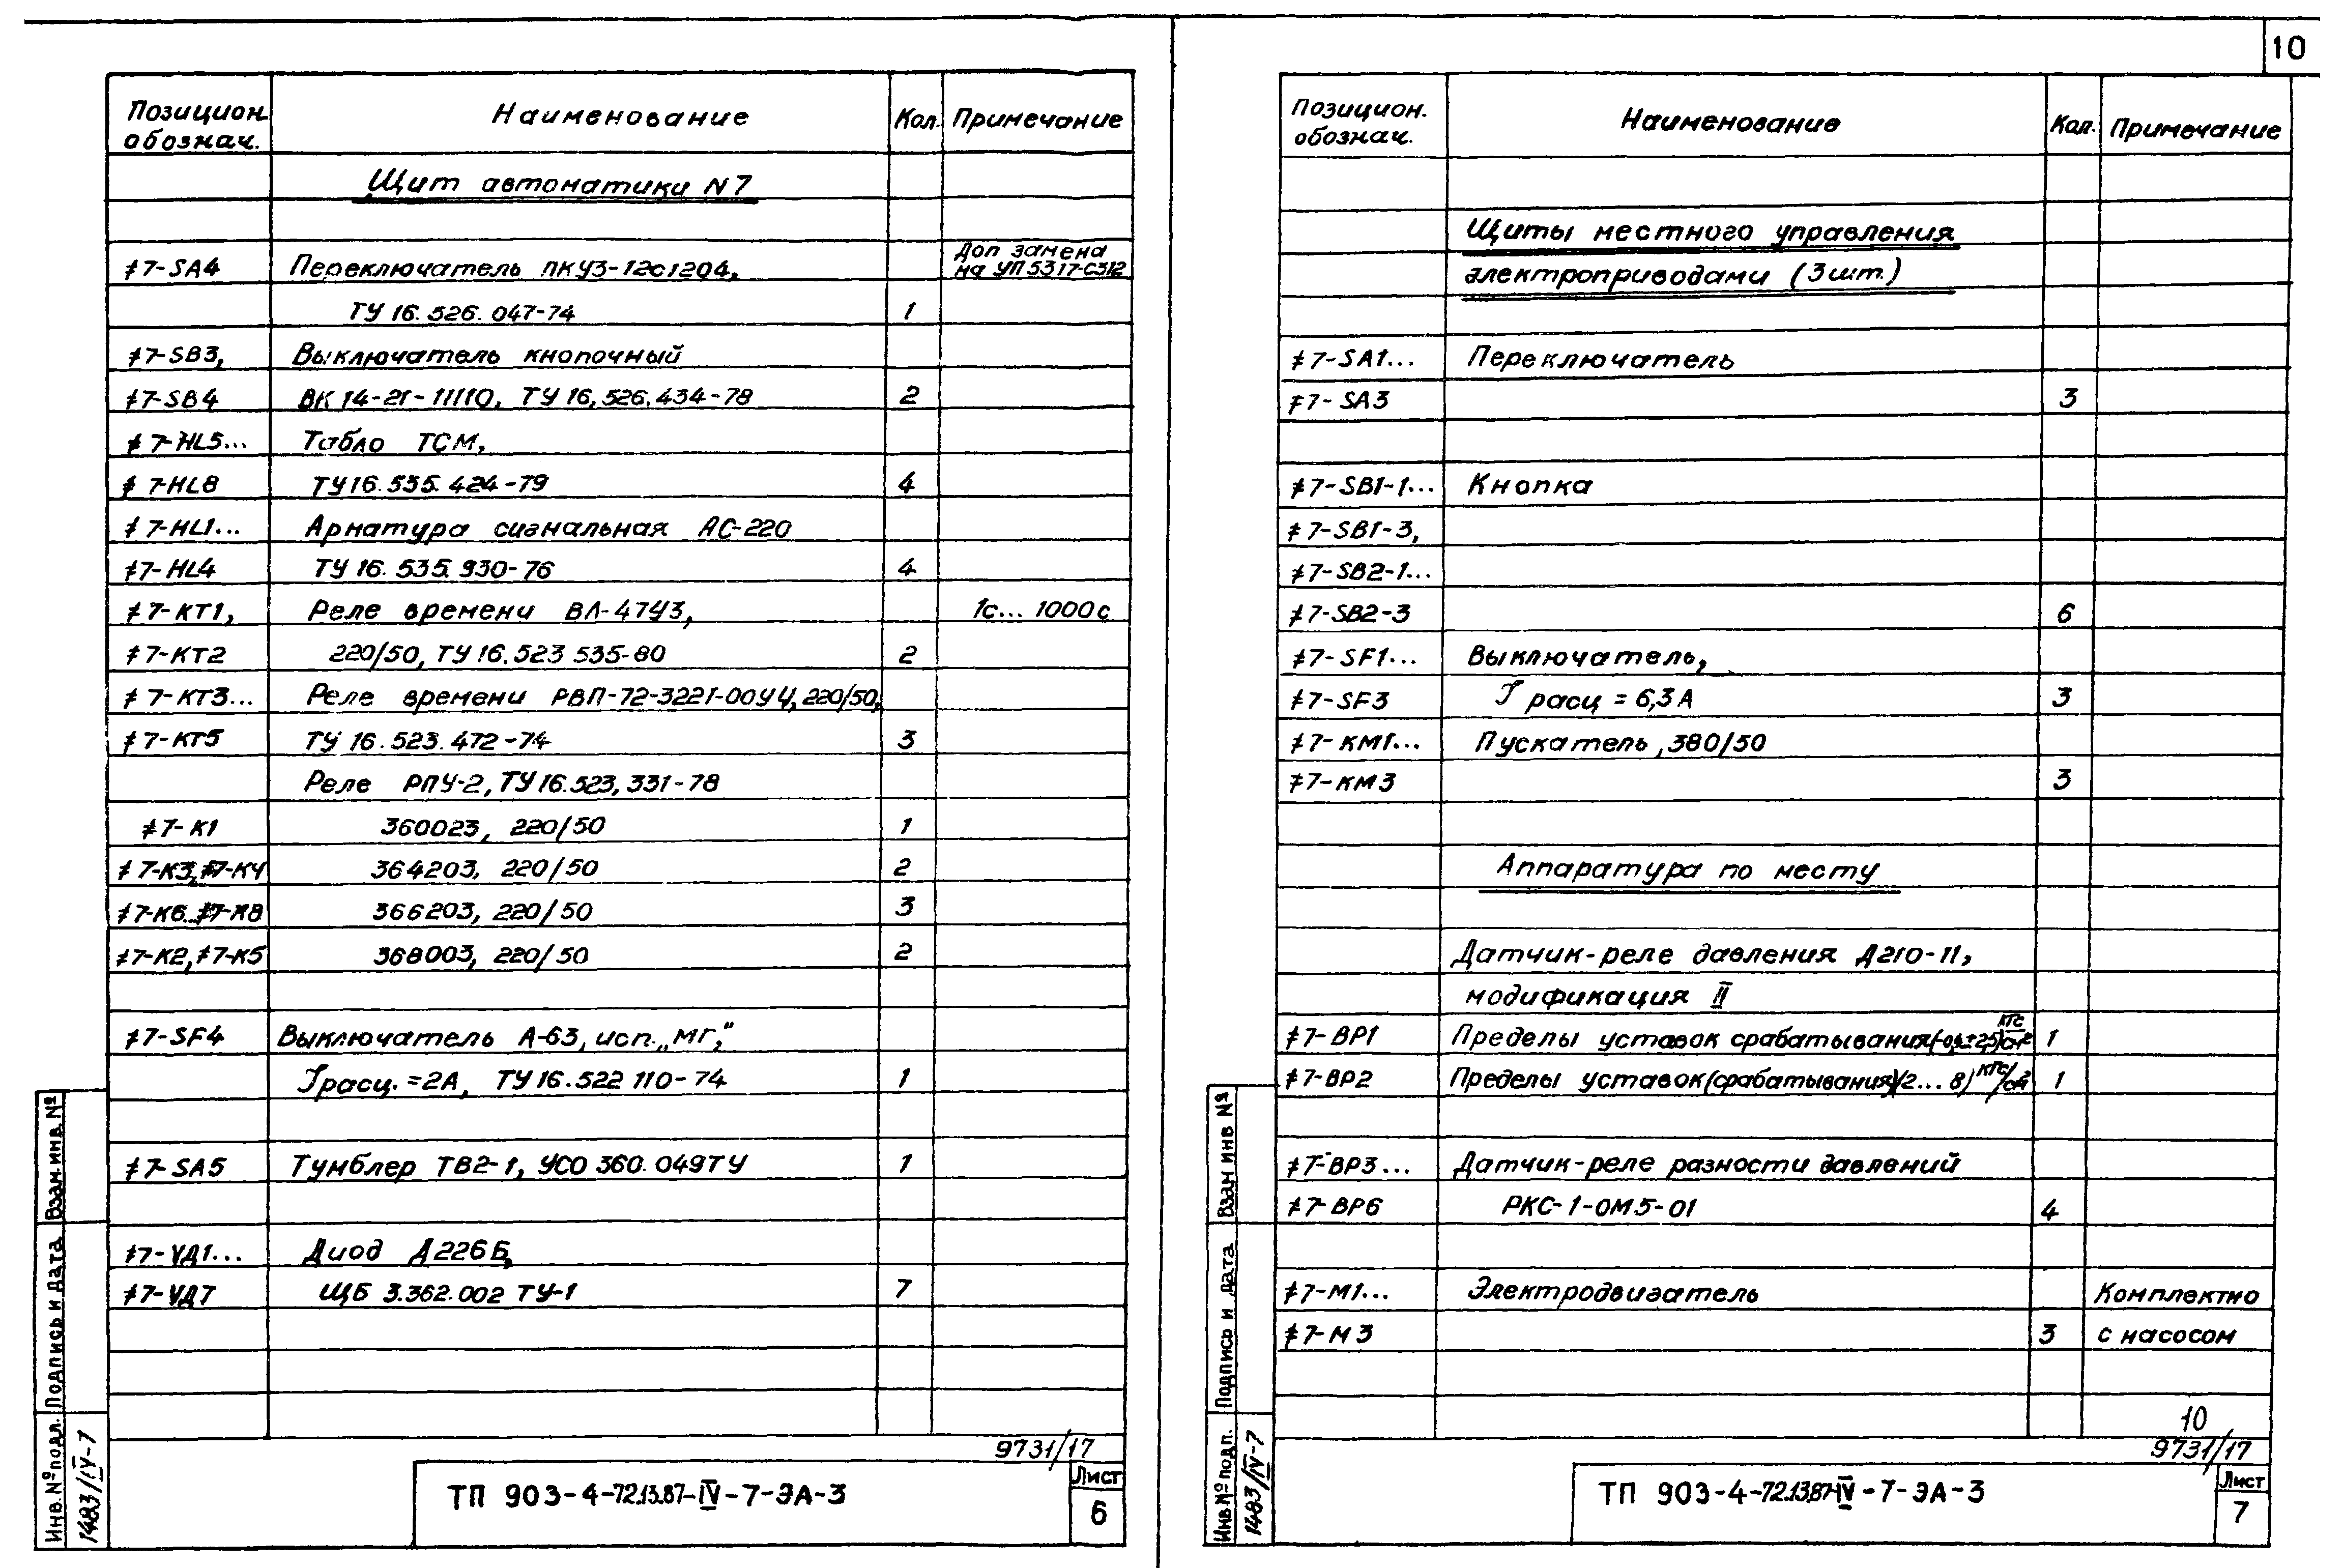 10
Позицион. обознач. Наименование Кол. Примечание
Щит автоматики N7
Доп замена
≠7-SA4 Переключатель ПКУ3-12с1204, на УП5317-С312
ТУ 16.526.047-74 1
≠7-SB3, Выключатель кнопочный
≠7-SB4 ВК14-21-11110, ТУ 16.526.434-78 2
≠7-HL5... Табло ТСМ,
≠7-HL8 ТУ16.535.424-79 4
≠7-HL1... Арматура сигнальная АС-220
≠7-HL4 ТУ 16.535.930-76 4
≠7-КТ1, Реле времени ВЛ-47У3, 1с...1000с
≠7-КТ2 220/50, ТУ 16.523 535-80 2
≠7-КТ3... Реле времени РВП-72-3221-00У4, 220/50,
≠7-КТ5 ТУ 16.523.472-74 3
Реле РПУ-2, ТУ 16.523,331-78
≠7-К1 360023, 220/50 1
≠7-К3,≠7-К4 364203, 220/50 2
≠7-К6...≠7-К8 366203, 220/50 3
≠7-К2,≠7-К5 368003, 220/50 2
≠7-SF4 Выключатель А-63, исп. „МГ,"
Iрасц.=2А, ТУ 16.522 110-74 1
≠7-SA5 Тумблер ТВ2-1, УСО 360.049ТУ 1
≠7-VД1... Диод Д226Б,
≠7-VД7 ЩБ 3.362.002 ТУ-1 7
9731/17
ТП 903-4-72.13.87-IV-7-ЭА-3
Лист
6
Взам.инв.№
Подпись и дата
Инв.№подл.
1483/IV-7
Позицион. обознач. Наименование Кол. Примечание
Щиты местного управления
электроприводами (3шт.)
≠7-SA1... Переключатель
≠7-SA3 3
≠7-SB1-1... Кнопка
≠7-SB1-3,
≠7-SB2-1...
≠7-SB2-3 6
≠7-SF1... Выключатель,
≠7-SF3 I расц = 6,3А 3
≠7-КМ1... Пускатель, 380/50
≠7-КМ3 3
Аппаратура по месту
Датчик-реле давления Д210-11,
модификация II
≠7-ВР1 Пределы уставок срабатывания(-0,4±2,5)кгс/см² 1
≠7-ВР2 Пределы уставок(срабатывания)(2...8) кгс/см² 1
≠7-ВР3... Датчик-реле разности давлений
≠7-ВР6 РКС-1-ОМ5-01 4
≠7-М1... Электродвигатель Комплектно
≠7-М3 3 с насосом
10
9731/17
ТП 903-4-72.13.87-IV-7-ЭА-3
Лист
7
Взам инв №
Подпись и дата
Инв.№подл.
1483/IV-7